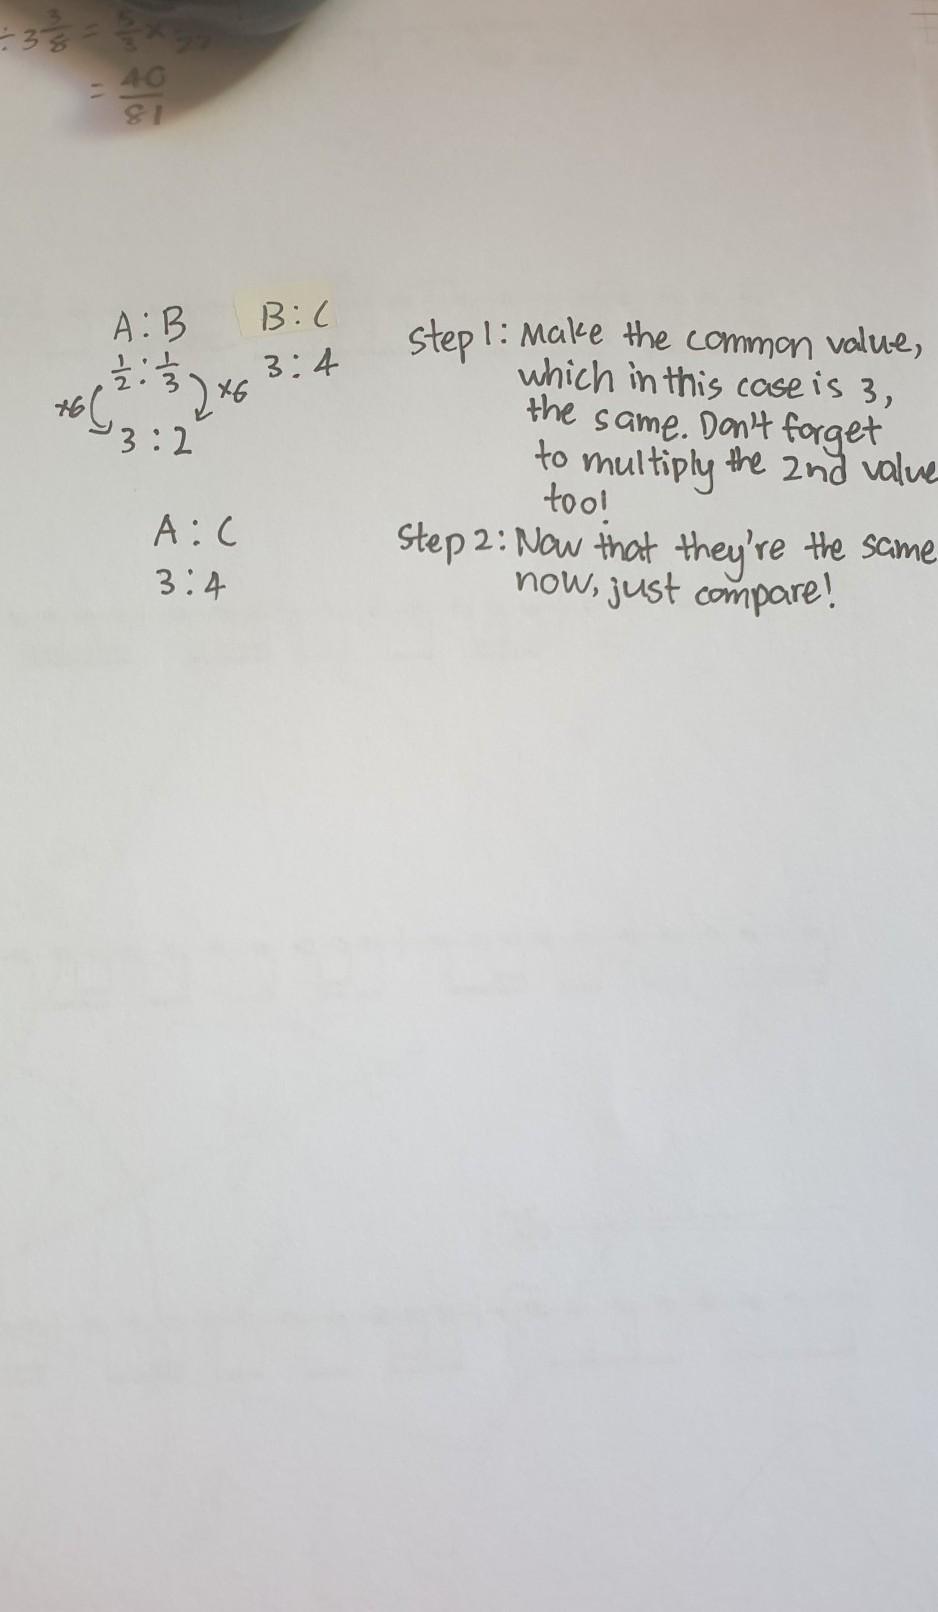 ÷ 3 3/8 = 5/3 ×
= 40/81
A : B B : C
1/2 : 1/3 3 : 4
×6 ×6
3 : 2
Step 1: Make the common value,
which in this case is 3,
the same. Don't forget
to multiply the 2nd value
too!
A : C
3 : 4
Step 2: Now that they're the same
now, just compare!